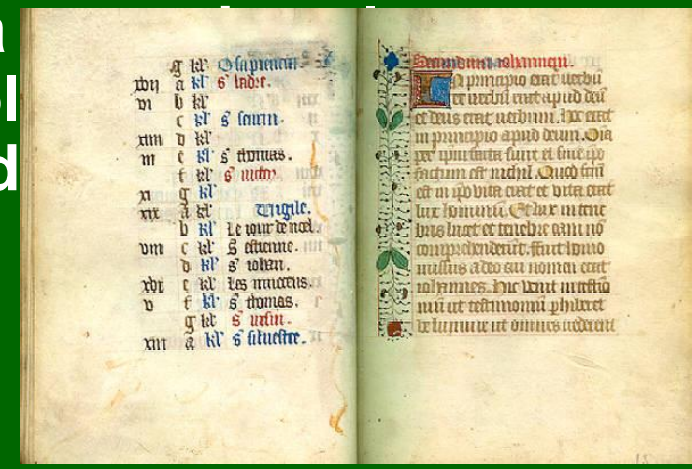 a
ol
d
g kl' O sapiencia.
xvii a kl' s ladre.
vi b kl'
c kl' s seurin.
xiiii d kl'
iii e kl' s thomas.
f kl' s victor
xi g kl'
xix a kl' Vigile.
b kl' Le iour de noel.
viii c kl' S estienne.
d kl' s iohan.
xvi e kl' les innocens.
v f kl' s thomas.
g kl' s ursin.
xiii a kl' s silvestre.
Secundum iohannem.
In principio erat verbū
et verbū erat apud deū
et deus erat verbum. Hoc erat
in principio apud deum. Oīa
per ipm̄ facta sunt et sine ipō
factum est nichil. Quod
est in ipō vita erat et vita erat
lux hominū. Et lux in tene
bris lucet et tenebre eam nō
comprehenderūt. Fuit homo
missus a deo cui nomen erat
iohannes. Hic venit in testīo
niū ut testimoniū phiberet
de lumine ut omnes crederent